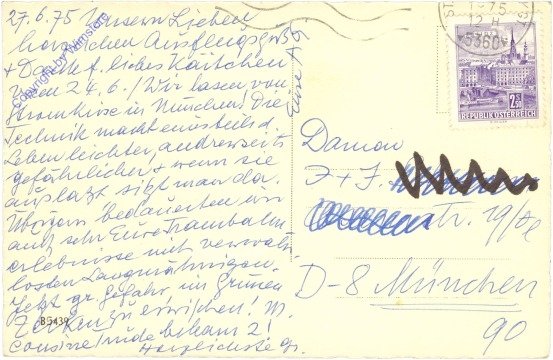 27.6.75 Unsern Lieben
herzlichen Ausflugsgruß
+ Dank f. liebes Kärtchen
vom 24.6.! Wir lasen von
Stromkrise in München. Die
Technik macht einesteils d.
Leben leichter, andrerseits
gefährlicher + wenn sie
ausläßt sitzt man da.
Übrigens bedauerten wir
auch sehr Eure Trambahn
erlebnisse mit verwahr
losten Langmähnigen.
Jetzt gr. Gefahr im Grünen
Zecken zu erwischen! M.
Cousine Trude bekam 2!
Herzlichste Gr.
Eure A
Copyright by Wimsters
B 5439
75
12 H
5360
2.50
REPUBLIK ÖSTERREICH
Damen
J + J.
str. 19/
D-8 München
90